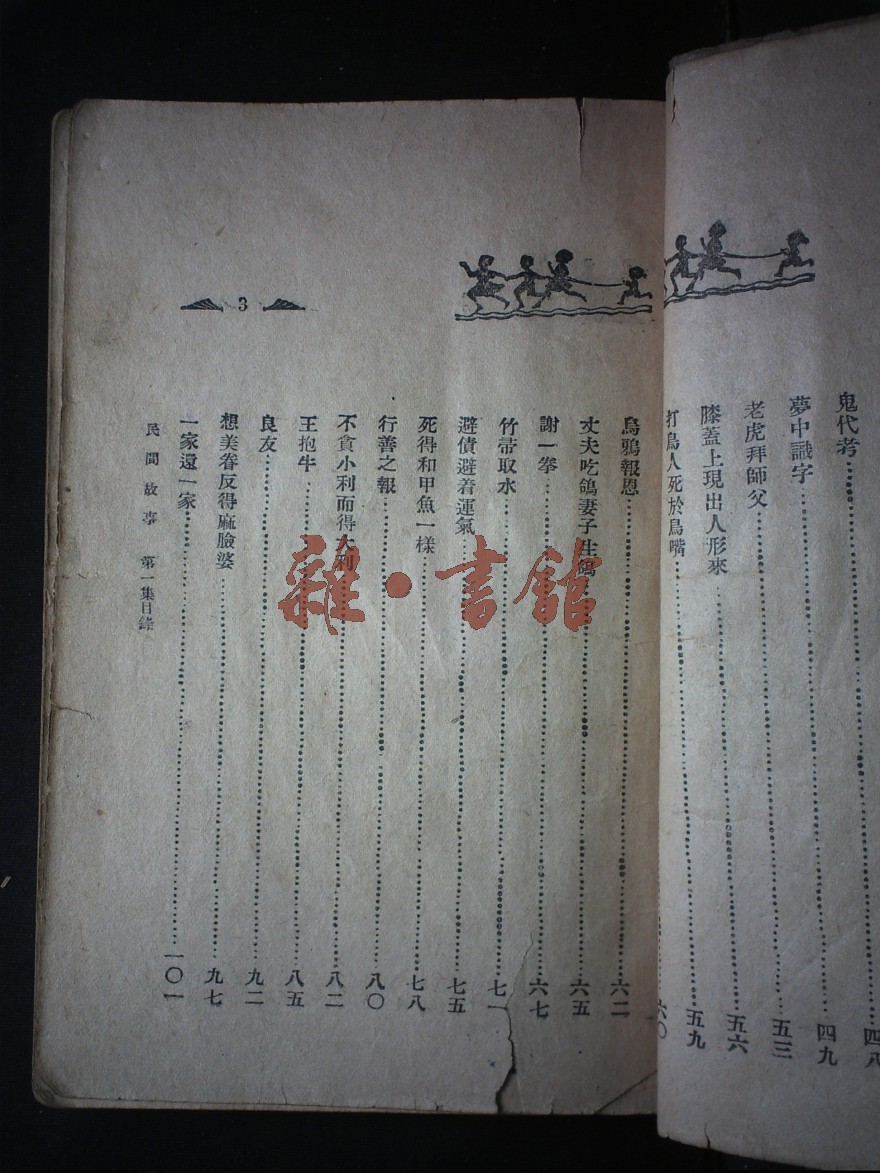 鬼代考……四八
夢中識字……四九
老虎拜師父……五三
膝蓋上現出人形來……五六
打鳥人死於鳥嘴……五九
……六〇
烏鴉報恩……六二
丈夫吃鴿妻子生鴿……六五
謝一拳……六七
取水……七一
避債避着運氣……七五
死得和甲魚一樣……七八
行善之報……八〇
不貪小利而得大利……八二
王抱牛……八五
良友……九二
想美眷反得麻臉婆……九七
一家還一家……一〇一
民間故事 第一集目錄
3
雜·書館